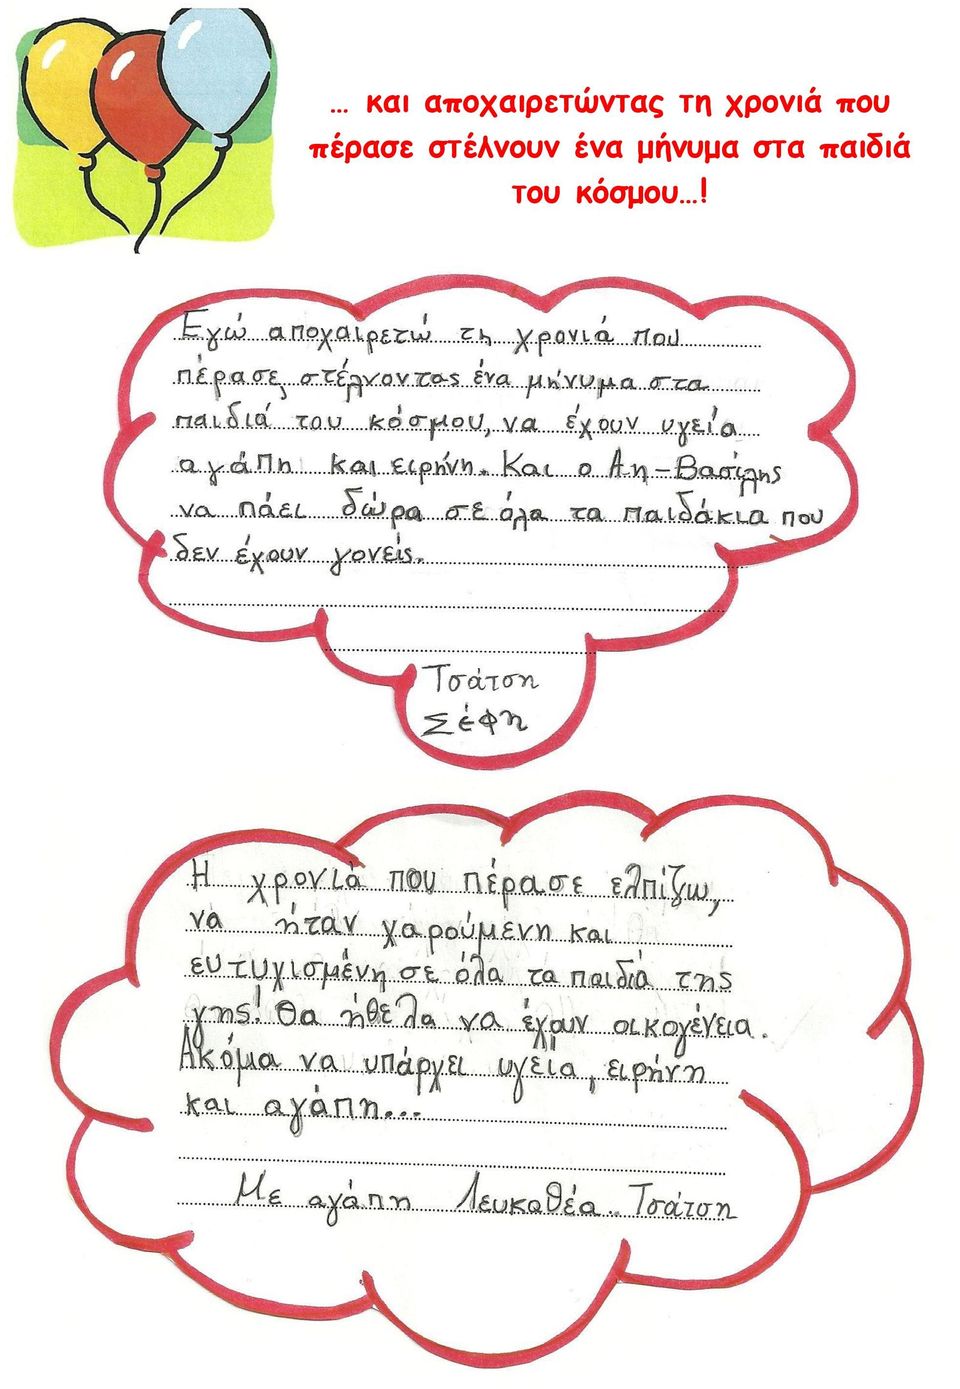 ... και αποχαιρετώντας τη χρονιά που
πέρασε στέλνουν ένα μήνυμα στα παιδιά
του κόσμου...!
Εγώ αποχαιρετώ τη χρονιά που
πέρασε, στέλνοντας ένα μήνυμα στα
παιδιά του κόσμου, να έχουν υγεία
αγάπη και ειρήνη. Και ο Αη-Βασίλης
να πάει δώρα σε όλα τα παιδάκια που
δεν έχουν γονείς.
Τσάτση
Σέφη
Η χρονιά που πέρασε ελπίζω,
να ήταν χαρούμενη και
ευτυχισμένη σε όλα τα παιδιά της
γης! Θα ήθελα να έχουν οικογένεια.
Ακόμα να υπάρχει υγεία, ειρήνη
και αγάπη...
Με αγάπη Λευκοθέα Τσάτση